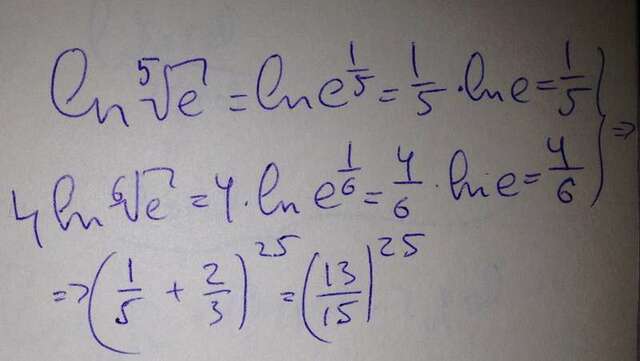 ln ⁵√e = ln e^(1/5) = 1/5 · ln e = 1/5 } =>
4 ln ⁶√e = 4 · ln e^(1/6) = 4/6 · ln e = 4/6
=> (1/5 + 2/3)^25 = (13/15)^25